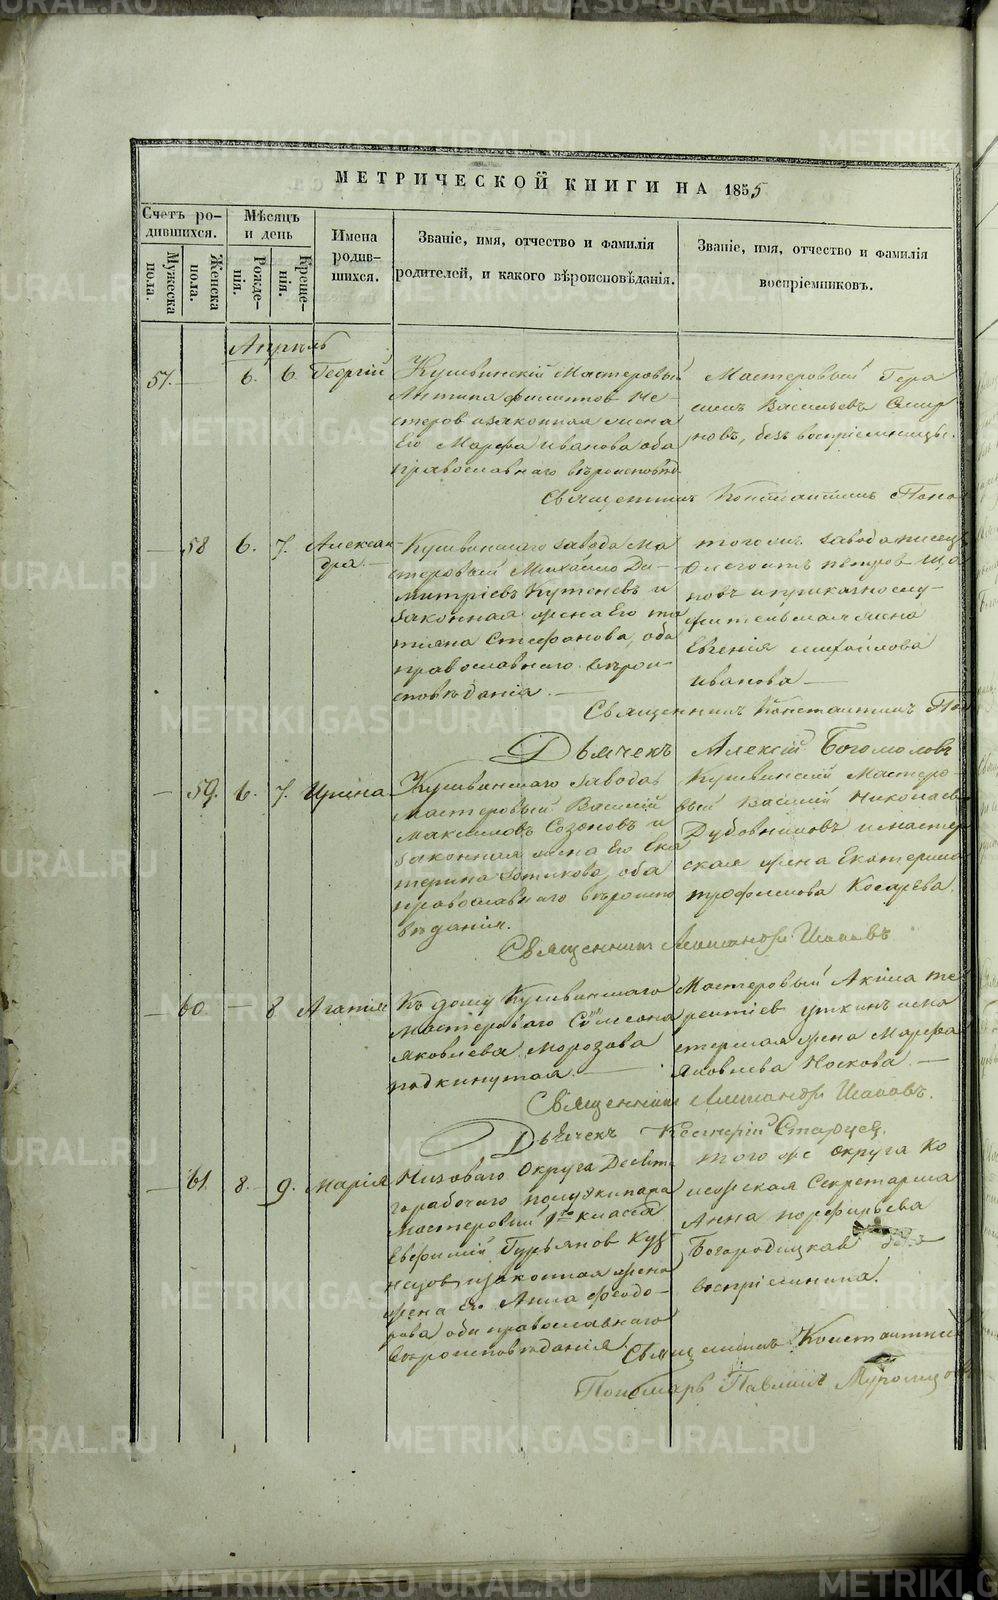 МЕТРИЧЕСКОЙ КНИГИ НА 1855
Счетъ родившихся.
Мужеска пола.
Женска пола.
Мѣсяцъ и день
Рожденія.
Крещенія.
Имена родившихся.
Званіе, имя, отчество и фамилія
родителей, и какого вѣроисповѣданія.
Званіе, имя, отчество и фамилія
воспріемниковъ.
Апрѣль
57. 6. 6. Георгій
Кушвинскій Мастеровый
Антипа Филиппов Не-
стеров и законная жена
Его Марфа Иванова оба
православнаго вѣроисповѣд
Мастеровый Гера
симъ Васильевъ Смир
новъ, безъ воспріемницы.
Священникъ Константинъ Попо
58 6. 7. Александра
Кушвинскаго завода Ма
стеровый Михайло Ди-
митріевъ Кутеневъ и
законная жена Его Та
тіяна Стефанова, оба
православнаго вѣрои-
сповѣданія.
тогожъ завода писецъ
Петров
новъ и приказнослу-
жительская жена
Евгенія Михайлова
Иванова
Священникъ Константинъ Поп
Дьячекъ Алексій Богомоловъ
59. 6. 7. Ирина
Кушвинскаго завода
мастеровый Василій
Максимовъ Созоновъ и
законная жена Его Ека
терина Зотикова, оба
православнаго вѣроиспо
вѣданія.
Кушвинскій Мастеро-
вый Василій Николаев
Дубовниковъ и мастер
ская жена Екатерина
Трофимова Косарева.
Священникъ Александръ Шаповъ
60 8 Агапія
Къ дому Кушвинскаго
мастероваго Симеона
Яковлева Морозова
подкинутая.
Мастеровый Акила Те
рентіев Уткинъ и ма
стерская жена Марфа
Яковлева Носкова.
Священникъ Александръ Шаповъ.
Дьячекъ Старцев.
61. 8. 9. Марія
Низоваго Округа Девято
горабочаго полуэкипажа
Мастеровый 1го класса
Евфимій Гурьянов Куз
нецов, и законная жена
жена Его Анна Феодо-
рова оба православнаго
вѣроисповѣданія.
того же округа Ко
лежская Секретарша
Анна Порфирьева
Богородицкая
воспріемника.
Священникъ Константинъ
Пономарь Павлинъ Муромцов
METRIKI.GASO-URAL.RU